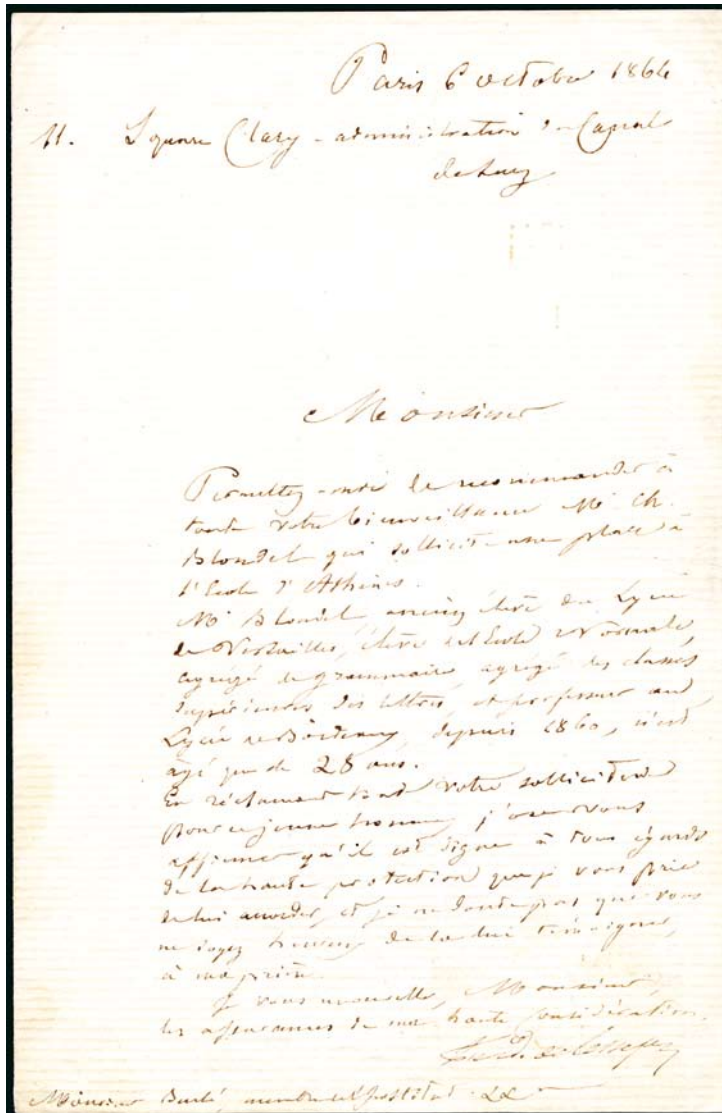 Paris 6 octobre 1864
11. Square Clary - administration du Canal
de Suez
Monsieur
Permettez-moi de recommander à
toute votre bienveillance Mr Ch.
Blondel qui sollicite une place à
l'Ecole d'Athènes.
Mr Blondel, ancien élève du Lycée
de Versailles, élève de l'Ecole Normale,
agrégé de grammaire, agrégé des classes
supérieures des lettres, et professeur au
Lycée de Bordeaux, depuis 1860, n'est
âgé que de 28 ans.
En réclamant toute votre sollicitude
pour ce jeune homme, j'ose vous
affirmer qu'il est digne à tous égards
de la haute protection que je vous prie
de lui accorder, et je ne doute pas que vous
ne soyez heureux de la lui témoigner,
à ma prière.
Je vous renouvelle, Monsieur,
les assurances de ma haute considération.
Ferd. de Lesseps
Monsieur Beulé, membre de l'Institut